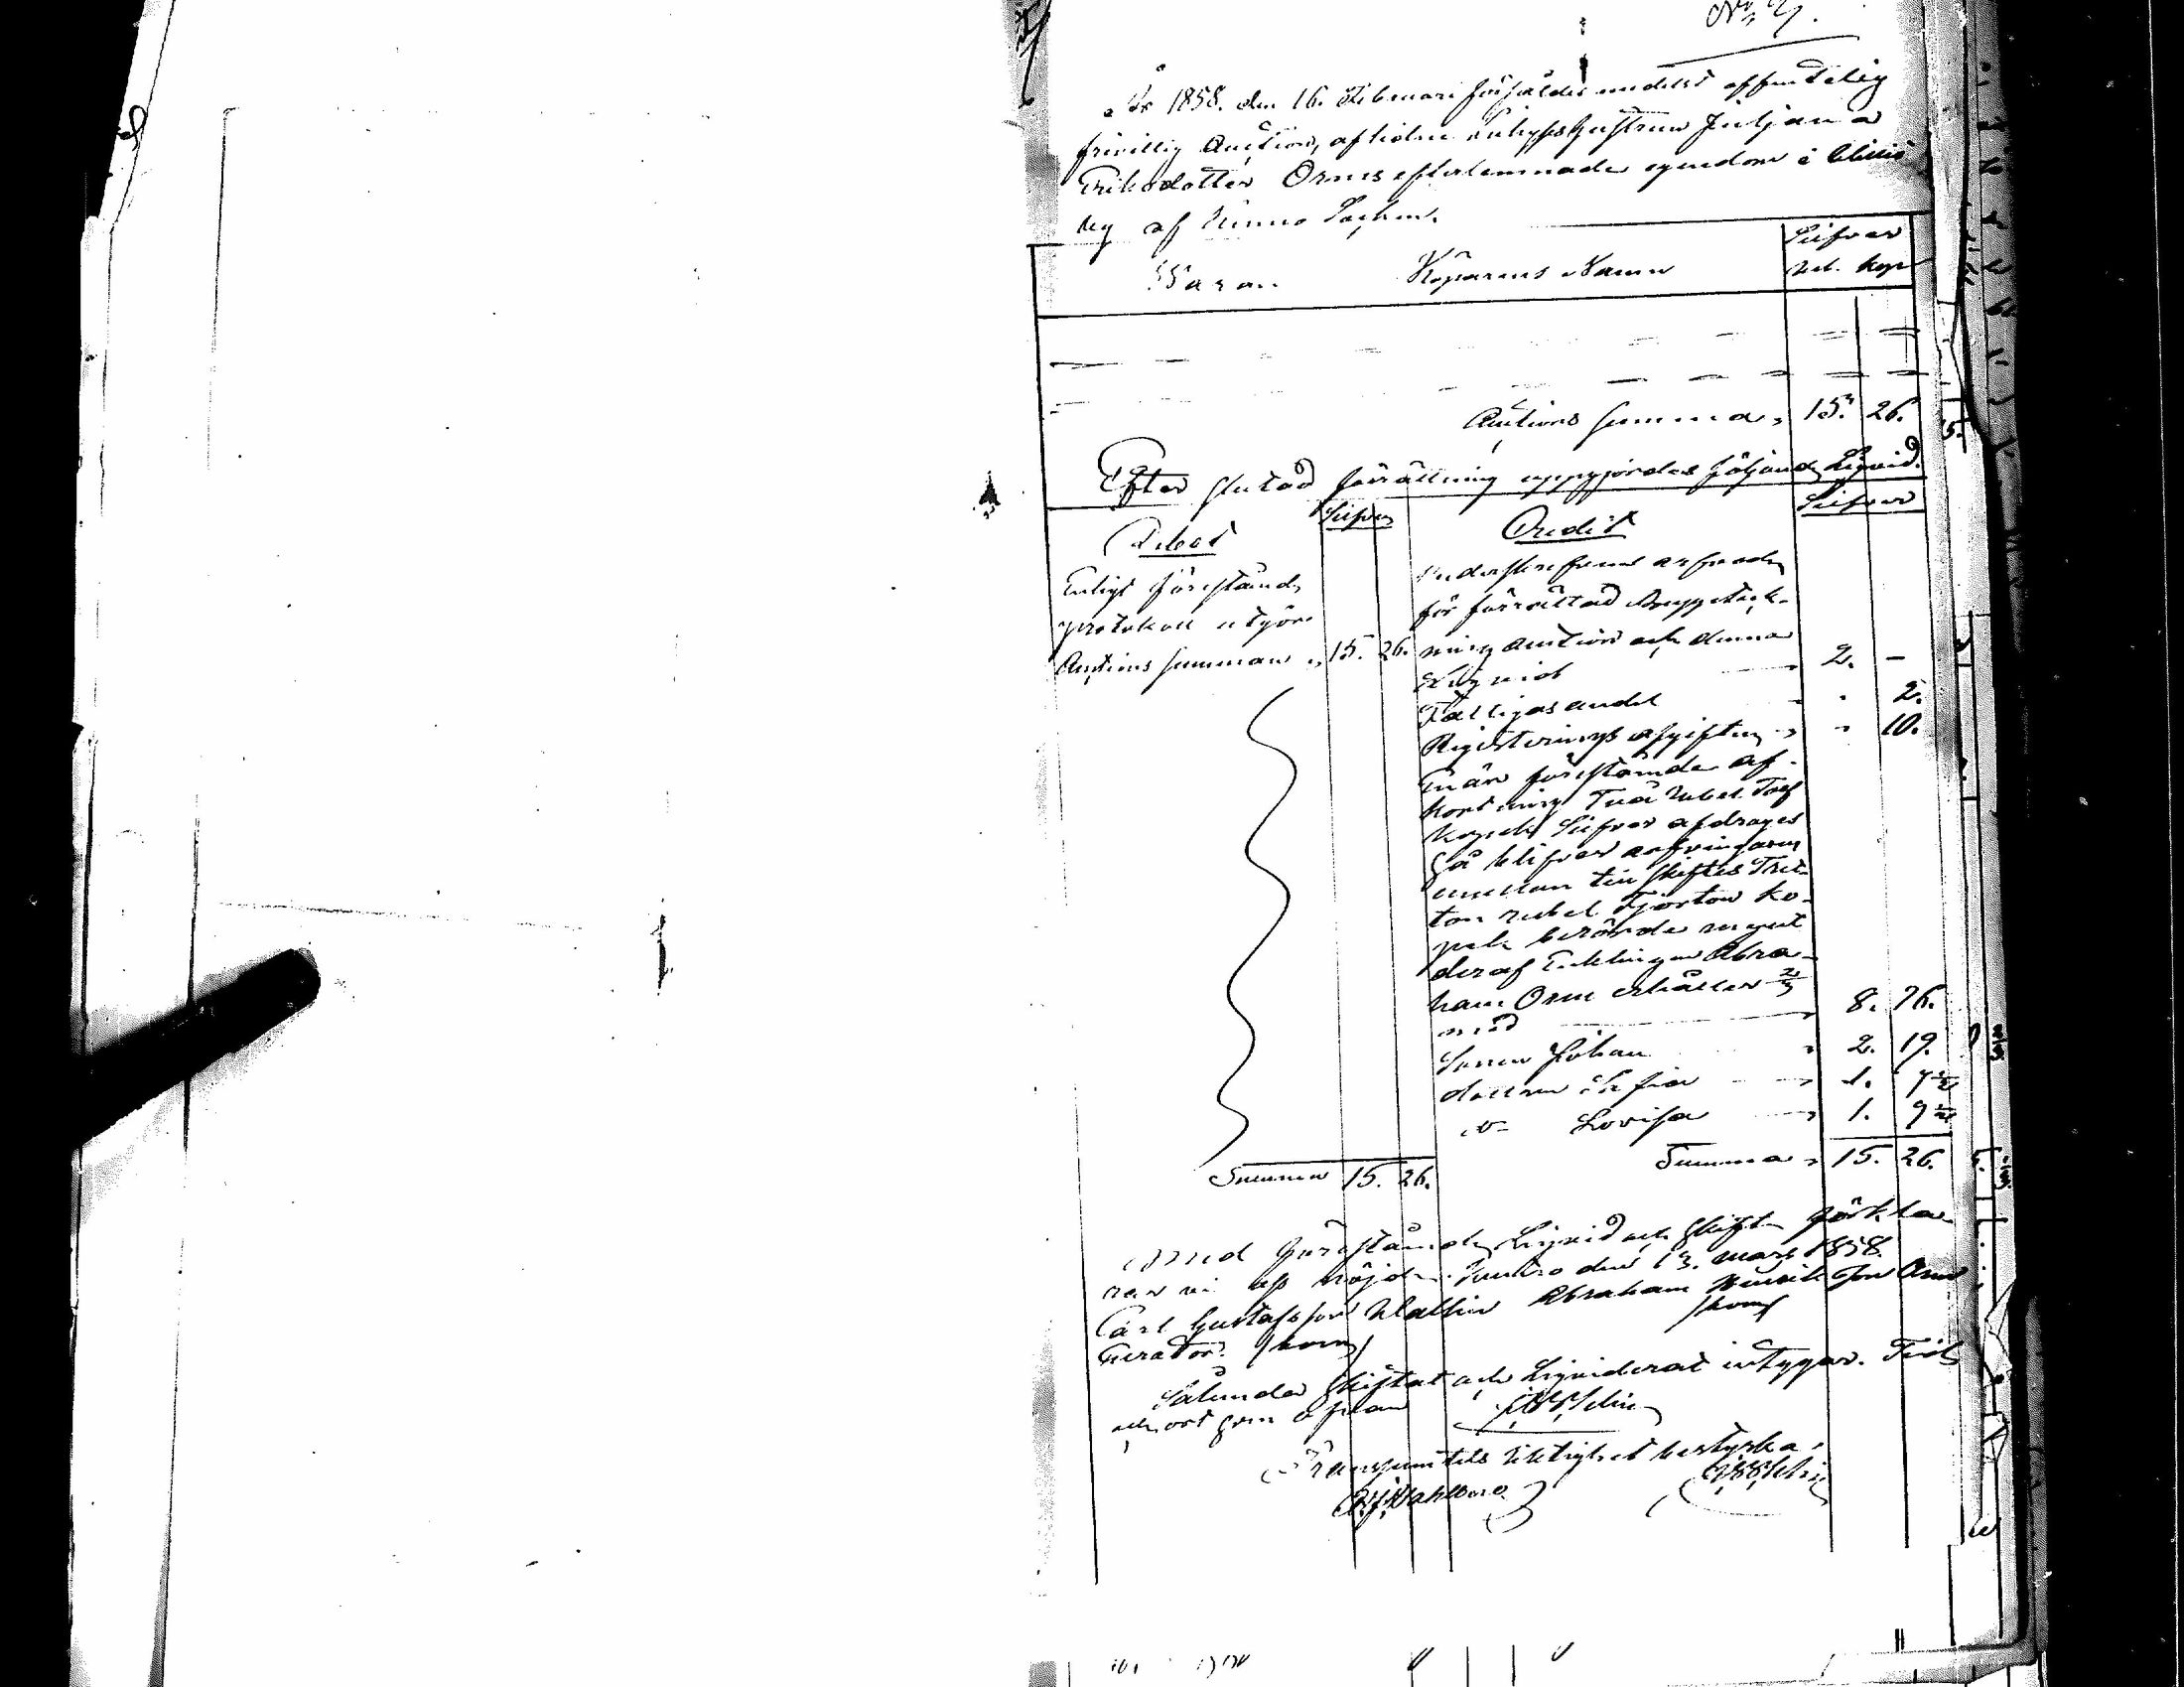 År 1858. den 16. Februari försåldes medelst offentelig
frivillig Auction, aflidne Juljana
Eriksdotter Orrns efterlemnade egendom i
by af Kumo Sochen.
Waran. Köparens Namn Silfver
rub. kop
Auctions Summa, 15. 26.
Efter slutad förrättning uppgjordes följande Liqvid.
Debet Silfver Credit Silfver
Enligt förestående
protokoll utgöra
Auctions Summan „ 15. 26.
Underskrefvens arfvode
för förrättad Bouppteck-
ning auction och denna
Liqvid 2. -
Fattigas andel „ 2.
Registerings afgiften „ „ 10.
När förestående af-
kortning Två rubel Tolf
kopek Silfver afdrages
så blifver arfvingarne
emellan till skiftes Tret-
ton rubel Fjorton ko-
pek
deraf Enklingen Abra-
ham Orrn erhåller 2/3
med 8. 76.
Sonen Johan 2. 19.
dottren Sofia 1. 9 1/2
„ Lovisa 1. 9 1/2
Summa 15. 26. Summa „ 15. 26.
Med förestående Liqvid och skifte förkla-
rar vi oss nöjde. Kumo den 13. mars 1858.
Carl Gustafsson Wallin Abraham Henriksson Orrn
Curator.
Sålunda skiftat och Liqviderat intygar. Tid
och ort som ofvan
Transsumtets riktighet bestyrka,